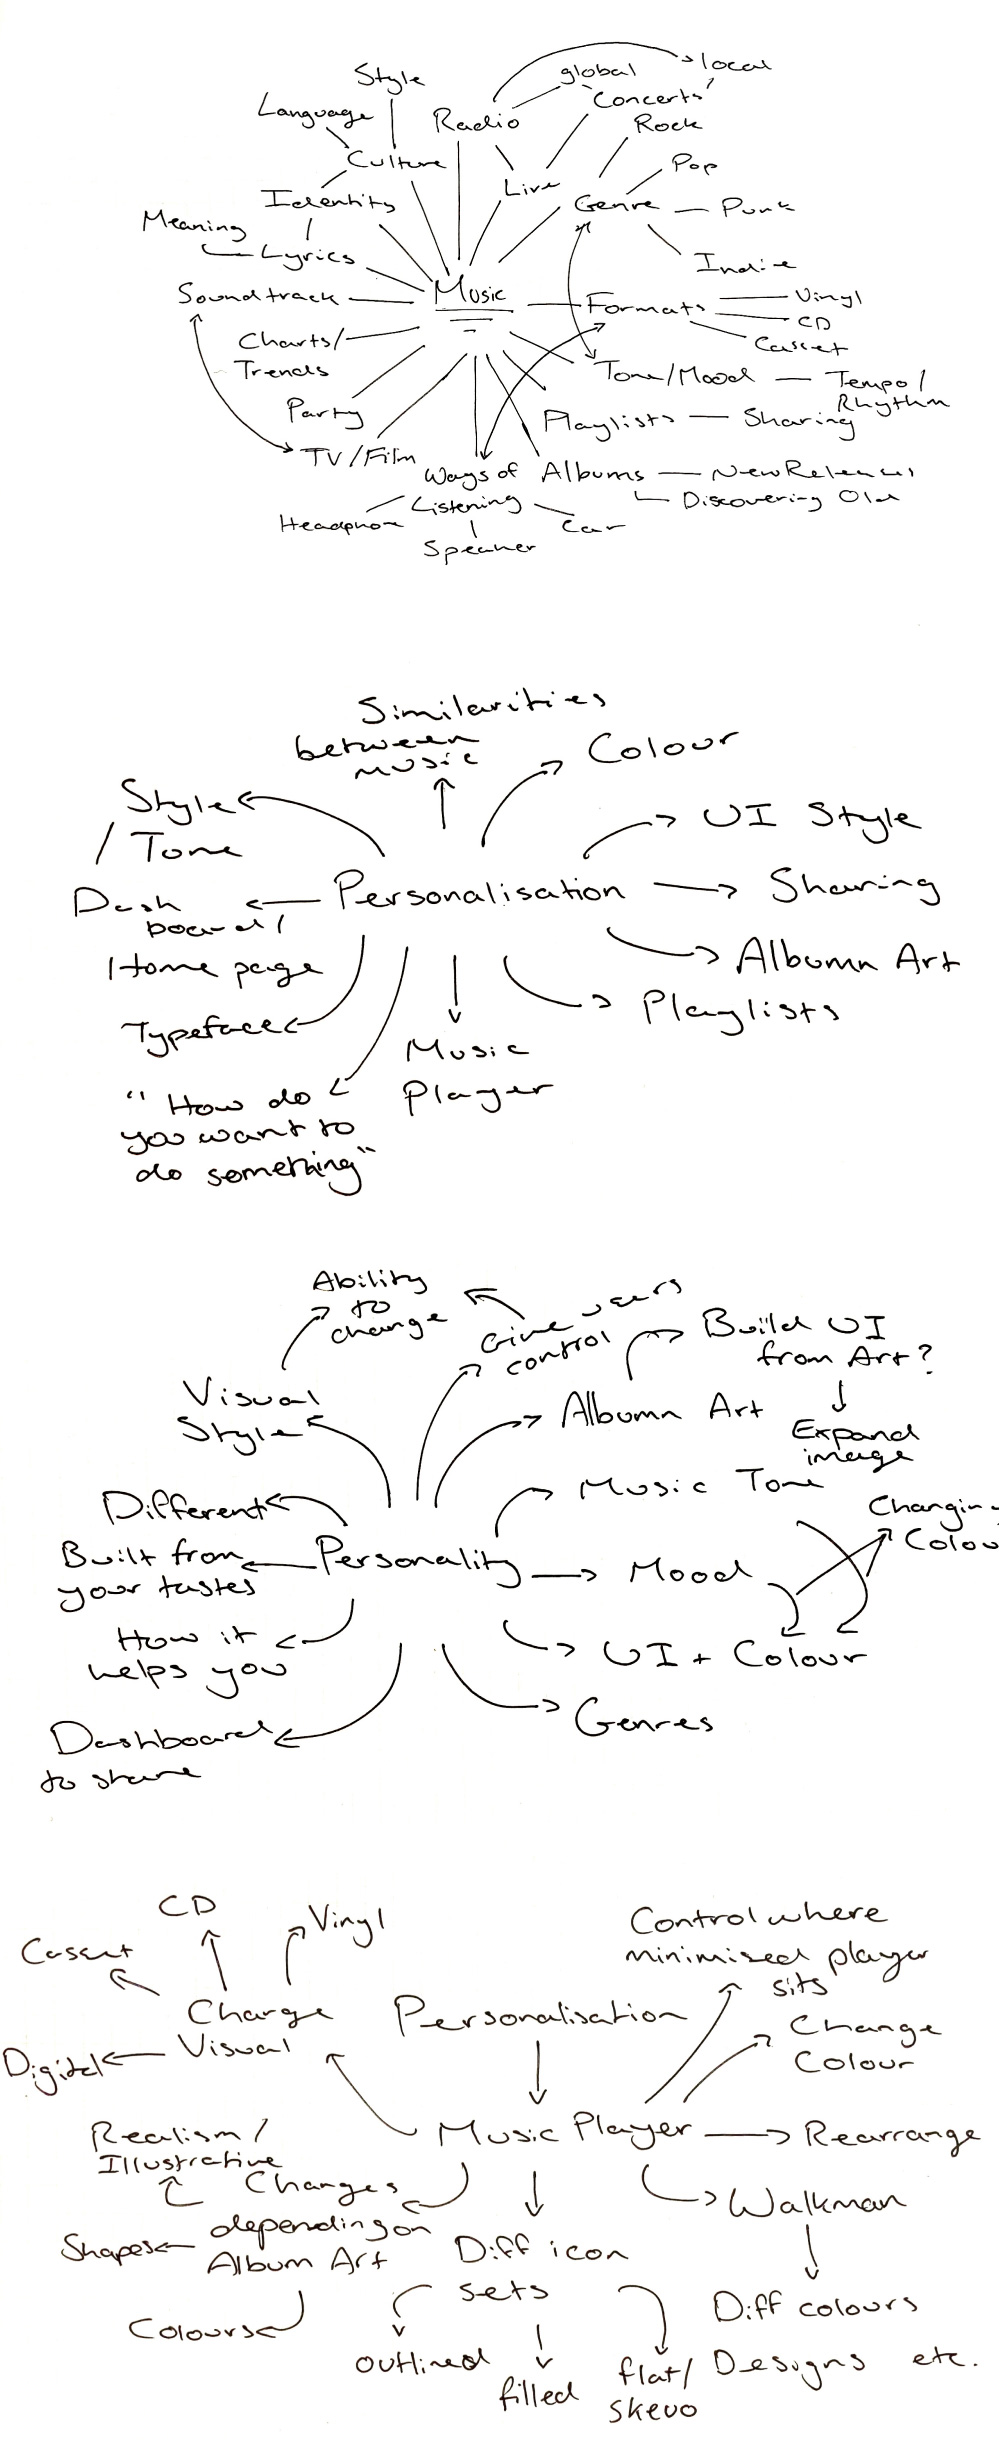 Style
global
local
Language
Radio
Concerts
Rock
Culture
Pop
Live
Identity
Genre
Punk
Meaning
Lyrics
Indie
Soundtrack
Music
Formats
Vinyl
CD
Charts/
Trends
Casset
Tone/Mood
Tempo/
Rhythm
Party
Playlists
Sharing
TV/Film
Ways of
Listening
Albums
New Releases
Discovering Old
Headphone
Speaker
Car
Similarities
between
music
Colour
Style
/ Tone
UI Style
Dash
board/
Home page
Personalisation
Sharing
Albumn Art
Playlists
Typeface
Music
Player
"How do
you want to
do something"
Ability
to
change
Give users
control
Build UI
from Art?
Visual
Style
Albumn Art
Expand
image
Music Tone
Different
Changing
Colou
Built from
your tastes
Personality
Mood
How it
helps you
UI + Colour
Genres
Dashboard
to share
CD
Vinyl
Control where
minimised player
sits
Casset
Change
Visual
Personalisation
Change
Colour
Digital
Music Player
Rearrange
Realism/
Illustrative
Changes
depending on
Album Art
Walkman
Shapes
Diff icon
sets
Colours
Diff colours
outlined
filled
flat/
skevo
Designs etc.